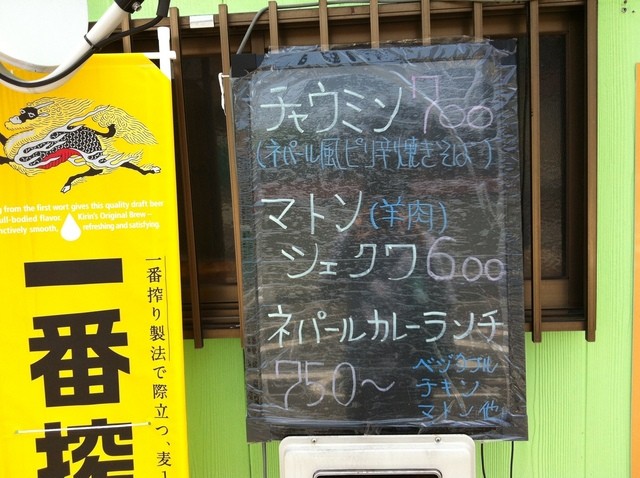 チャウミン 700
(ネパール風ピリ辛焼きそば)
マトン(羊肉)
シェクワ 600
ネパールカレーランチ
750〜
ベジタブル
チキン
マトン 他
from the first wort gives this quality draft beer
full-bodied flavor.
Kirin's Original Brew –
refreshing and satisfying.
一番搾り製法で際立つ、麦
一番搾